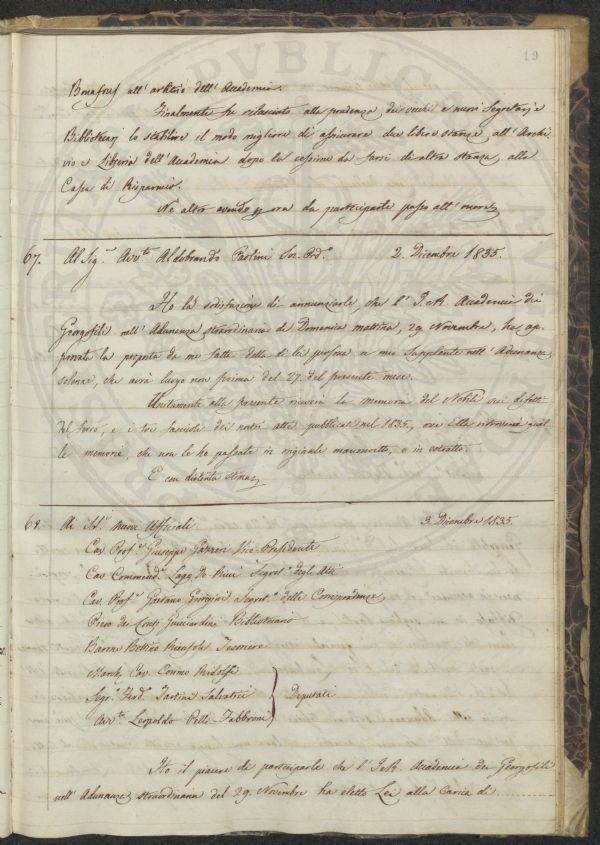 19
Bonajuti all'arbitrio dell'Accademia.
Finalmente fu rilasciato alla prudenza dei vecchi e nuovi Segretarj e
Bibliotecarj lo stabilire il modo migliore di assicurare due libere stanze all'Archi
vio e Libreria dell'Accademia dopo la cessione da farsi di altra stanza alla
Cassa di Risparmio.
Nè altro avendo p ora da partecipare passo all'onore
67. Al Sig.r Avv.to Aldobrando Paolini Soc. Ord.o 2. Dicembre 1835.
Ho la sodisfazione di annunziarle, che l'I. e R. Accademia dei
Georgofili nell'Adunanza straordinaria di Domenica mattina, 29 Novembre, ha ap
provata la proposta da me fatta della di lei persona a mio Supplente nell'Adunanza
solenne, che avrà luogo non prima del 27. del presente mese.
Unitamente alla presente riceverà la memoria del Nobili sui difetti
del ferro, e i tre fascicoli dei nostri atti pubblicati nel 1835, ove Ella ritroverà quel
le memorie, che non le ho passate in originale manoscritto, o in estratto.
E con distinta stima
68. Ai SS.ri nuovi Uffiziali 3. Dicembre 1835.
Cav. Prof.re Giuseppe Gazzeri Vice Presidente
Cav. Commend.re Lapo de' Ricci Segret.o degli Atti
Cav. Prof.re Gaetano Giorgini Segret.o delle Corrispondenze
Piero dei Conti Guicciardini Bibliotecario
Barone Bettino Ricasoli Tesoriere
March. Cav. Cosimo Ridolfi
Sigr. Ferd.o Tartini Salvatici
Avv.to Leopoldo Pelli Fabbroni
Deputati
Ho il piacere di parteciparle che l'I. e R. Accademia dei Georgofili
nell'Adunanza straordinaria del 29. Novembre ha eletto Lei alla Carica di